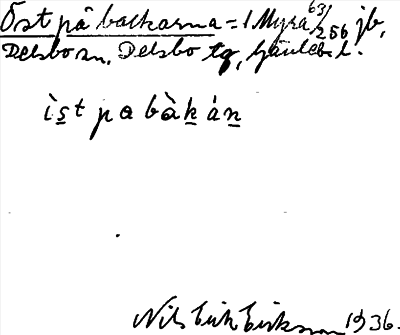 Öst på backarna = 1 Myra 63/256 jb,
Delsbo sn, Delsbo tg, Gävleb. l.
ìst pa bàkàn
Nils Erik Eriksson 1936.